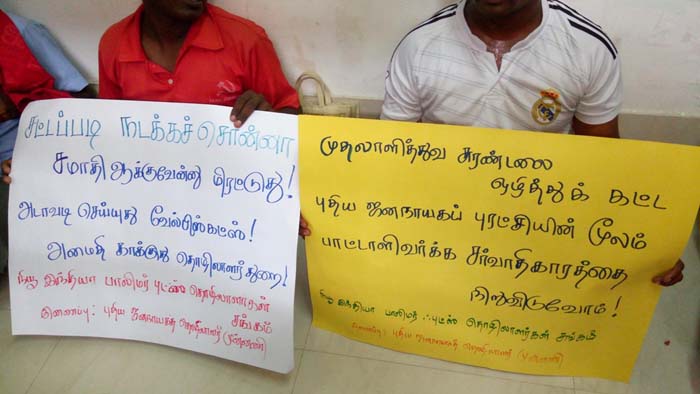 சட்டப்படி நடக்கச் சொன்னா
சமாதி ஆக்குவேன்னு மிரட்டுது!
அடாவடி செய்யுது வேல்பிஸ்கட்ஸ்!
அமைதி காக்குது தொழிலாளர்துறை!
நியூ இந்தியா பாலிமர் புட்ஸ் தொழிலாளர்கள்
சங்கம்
இணைப்பு: புதிய ஜனநாயகத் தொழிலாளர்
முதலாளித்துவ சுரண்டலை
ஒழித்துக் கட்ட
புதிய ஜனநாயகப் புரட்சியின் மூலம்
பாட்டாளிவர்க்க சர்வாதிகாரத்தை
நிறுவிடுவோம்!
நியூ இந்தியா பாலிமர் ஃபுட்ஸ் தொழிலாளர்கள் சங்கம்
இணைப்பு: புதிய ஜனநாயகத் தொழிலாளர்